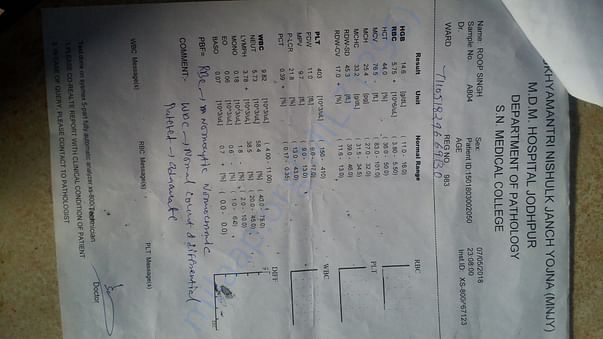 KHYAMANTRI NISHULK JANCH YOJNA (MNJY)
M.D.M. HOSPITAL JODHPUR
DEPARTMENT OF PATHOLOGY
S.N. MEDICAL COLLEGE
Name: ROOP SINGH Sex: 07/05/2018
Sample No. A804 Patient ID: 23:08:00
Dr. AGE Inst.ID: XS-800i^67123
WARD REG NO. 983
Result Unit Normal Range
HGB 14.6 [g/dL] (11.0 - 18.0)
RBC 5.75 + [10^6/uL] (3.80 - 5.50)
HCT 44.0 [%] (36.0 - 50.0)
MCV 76.5 - [fL]
MCH 25.4 - [pg] (27.0 - 32.0)
MCHC 33.2 [g/dL] (31.5 - 34.5)
RDW-SD 45.3 [fL]
RDW-CV 17.0 + [%]
PLT 403 [10^3/uL] (150 - 410)
PDW 11.1 [fL]
MPV 9.7 [fL]
P-LCR 21.8 [%] (13.0 - 43.0)
PCT 0.39 + [%] (0.17 - 0.35)
WBC 9.82 [10^3/uL] (4.00 - 11.00)
NEUT 5.73 [10^3/uL] 58.4 [%] (40.0 - 75.0)
LYMPH 3.78 + [10^3/uL] 38.5 [%] (20.0 - 45.0)
MONO 0.18 [10^3/uL] 1.8 [%] (2.0 - 10.0)
EO 0.06 [10^3/uL] 0.6 [%] (1.0 - 6.0)
BASO 0.07 [10^3/uL] 0.7 + [%] (0.0 - 0.0)
RBC
PLT
WBC
DIFF
COMMENT:-
PBF= RBC → Normocytic Normochromic
WBC → Normal count & differential
Platelet → adequate
WBC Message(s) RBC Message(s) PLT Message(s)
Test done on sysmex 5-part fully automatic analyzer xs-800i Technician Doctor
1. PLEASE CO-REALTE REPORT WITH CLINICAL CONDITION OF PATIENT
2. IN CASE OF QUERY, PLEASE CONTACT TO PATHOLOGIST